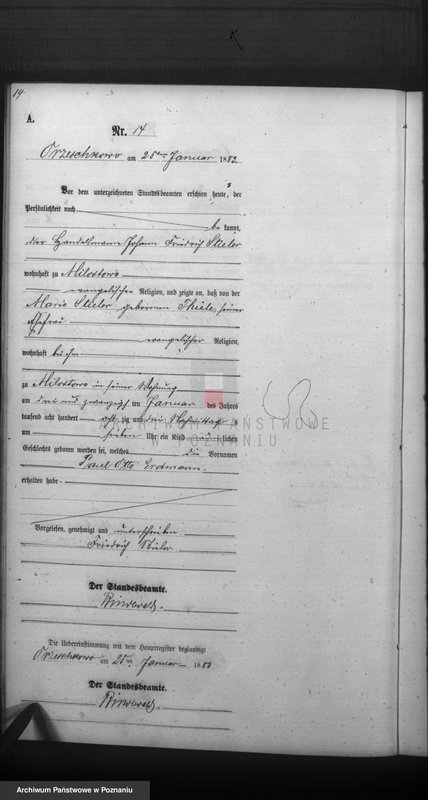 14
A.
Nr. 14
Orzeschkowo am 25ten Januar 1883.
Vor dem unterzeichneten Standesbeamten erschien heute, der
Persönlichkeit nach
be kannt,
der Handelsmann Johann Friedrich Stieler
wohnhaft zu Milostowo
evangelischer Religion, und zeigte an, daß von der
Marie Stieler geborenen Thiele, seiner
Ehefrau
evangelischer Religion,
wohnhaft bei ihm
zu Milostowo in seiner Wohnung
am drei und zwanzigsten Januar des Jahres
tausend acht hundert acht zig und drei Nachmittags
um sieben Uhr ein Kind männlichen
Geschlechts geboren worden sei, welches die Vornamen
Paul Otto Erdmann
erhalten habe.
Vorgelesen, genehmigt und unterschrieben
Friedrich Stieler
Der Standesbeamte.
ARCHIWUM PAŃSTWOWE
W POZNANIU
Die Uebereinstimmung mit dem Hauptregister beglaubigt
Orzeschkowo am 25ten Januar 1883
Der Standesbeamte.
Archiwum Państwowe w Poznaniu